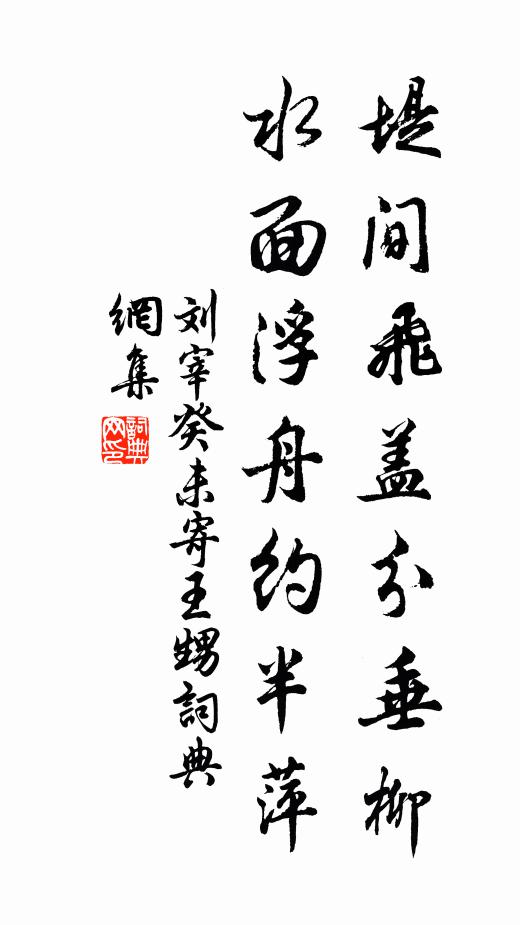 堤间飛盖分垂柳
水面浮舟约半萍
刘宰癸未寄王甥詞典
網集
詞典網印